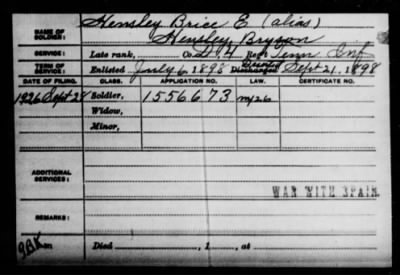 Hensley Brice E (alias)
NAME OF SOLDIER: Hensley, Bryson
SERVICE: Late rank, Co. D, 4 Reg't Tenn Inf
TERM OF SERVICE: Enlisted July 6, 1898 Deserted Discharged Sept 21, 1898
DATE OF FILING. CLASS. APPLICATION NO. LAW. CERTIFICATE NO.
1926 Sept 28 Soldier, 1556673 my26
Widow,
Minor,
ADDITIONAL SERVICES:
WAR WITH SPAIN.
REMARKS:
Died , 1 , at